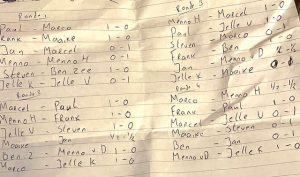 Ronde 1
Paul - Marco 1-0
Frank - Maaike 1-0
Jan - Marcel 0-1
Menno - Menno H 0-1
Steven - Ben Zee 1-0
Jelle K - Jelle V 0-1
Ronde 3
Marcel - Paul 1-0
Menno H - Frank 1-0
Jelle V - Steven 1-0
Maaike - Jan ½-½
Ben Z - Menno v D 1-0
Marco - Jelle K 1-0
Ronde 2
Menno H - Marcel 1-0
Paul - Jelle V
Steven - Frank 0-1
Marco - Ben
Maaike - Menno v D ½-½
Jan
Jelle K - Maaike 0-0
Ronde 4
Marco - Menno H ½-½
Frank - Paul 1-0
Marcel - Jelle V 0-1
Maaike - Steven 0-1
Ben - Jan 0-1
Menno v D - Jelle K 1-0